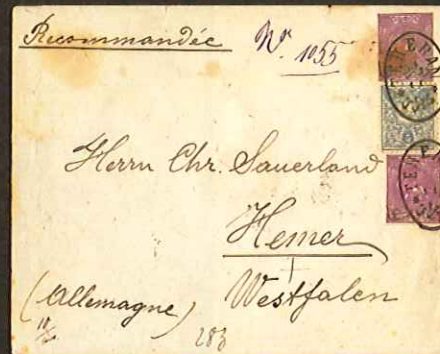 Recommandée
Nr. 1055
TEHERAN
TEHERAN
Herrn Chr. Sauerland
Hemer
Westfalen
(Allemagne)
283